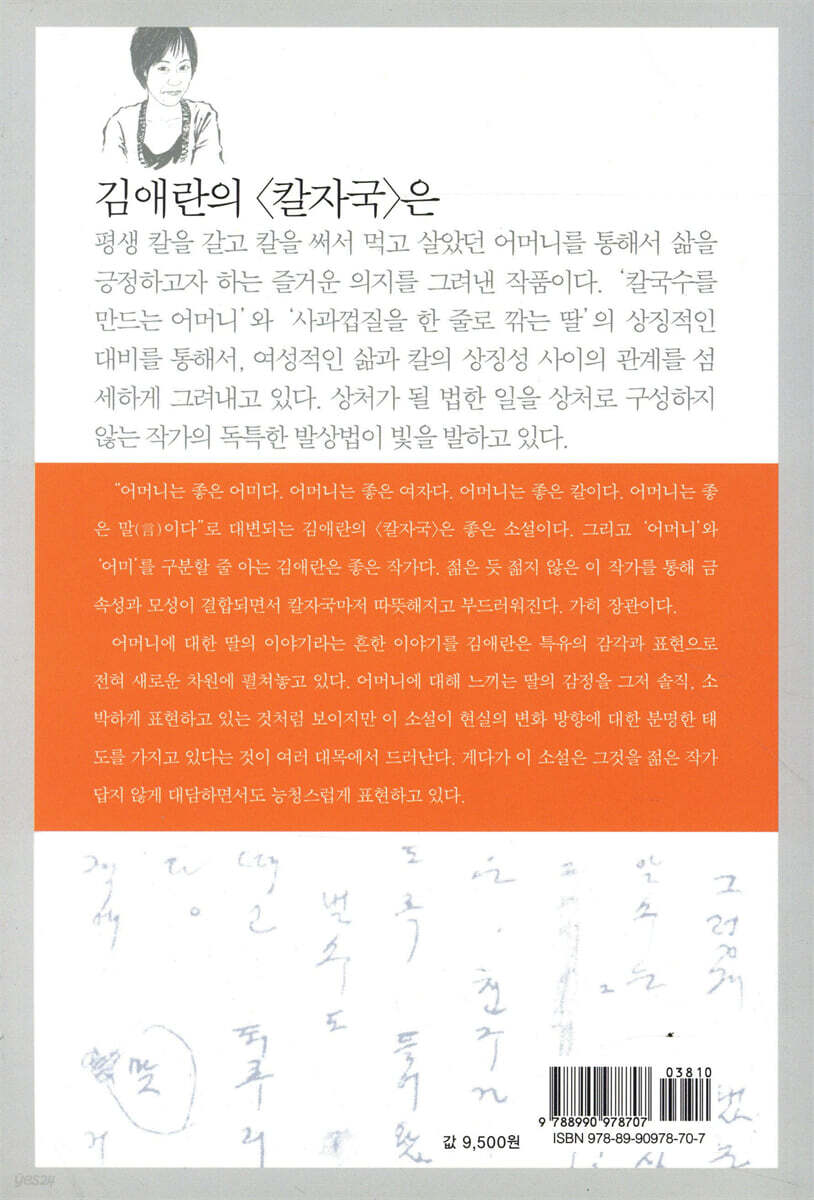 김애란의 〈칼자국〉은
평생 칼을 갈고 칼을 써서 먹고 살았던 어머니를 통해서 삶을
긍정하고자 하는 즐거운 의지를 그려낸 작품이다. ‘칼국수를
만드는 어머니’와 ‘사과껍질을 한 줄로 깎는 딸’의 상징적인
대비를 통해서, 여성적인 삶과 칼의 상징성 사이의 관계를 섬
세하게 그려내고 있다. 상처가 될 법한 일을 상처로 구성하지
않는 작가의 독특한 발상법이 빛을 발하고 있다.
“어머니는 좋은 어미다. 어머니는 좋은 여자다. 어머니는 좋은 칼이다. 어머니는 좋
은 말(言)이다”로 대변되는 김애란의 〈칼자국〉은 좋은 소설이다. 그리고 ‘어머니’와
‘어미’를 구분할 줄 아는 김애란은 좋은 작가다. 젊은 듯 젊지 않은 이 작가를 통해 금
속성과 모성이 결합되면서 칼자국마저 따뜻해지고 부드러워진다. 가히 장관이다.
어머니에 대한 딸의 이야기라는 흔한 이야기를 김애란은 특유의 감각과 표현으로
전혀 새로운 차원에 펼쳐놓고 있다. 어머니에 대해 느끼는 딸의 감정을 그저 솔직, 소
박하게 표현하고 있는 것처럼 보이지만 이 소설이 현실의 변화 방향에 대한 분명한 태
도를 가지고 있다는 것이 여러 대목에서 드러난다. 게다가 이 소설은 그것을 젊은 작가
답지 않게 대담하면서도 능청스럽게 표현하고 있다.
03810
9 788990 978707
값 9,500원
ISBN 978-89-90978-70-7
yes24